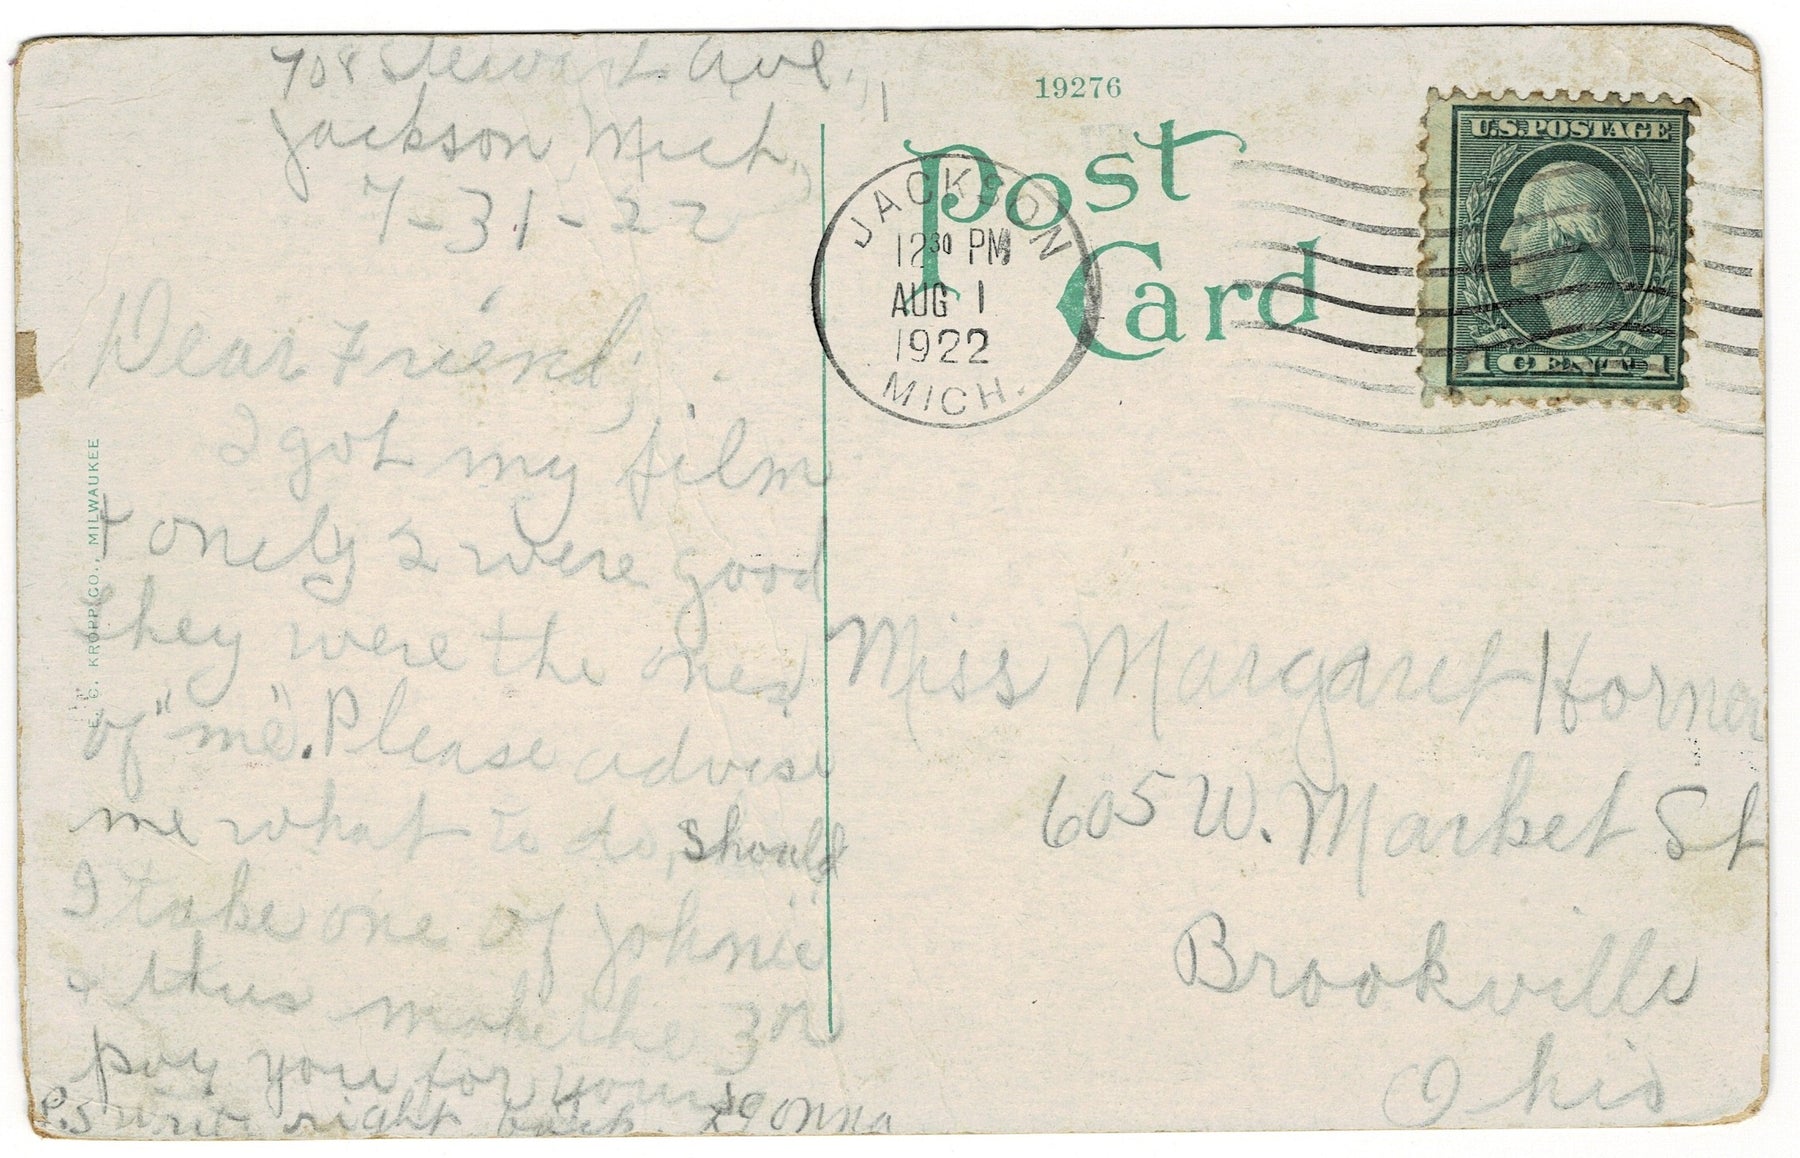 708 Stewart Ave.,
Jackson Mich,
7-31-22
Dear Friend,
I got my film
+ onely 2 were good
They were the ones
of "me". Please advise
me what to do, should
I take one of Johnie
+ thus make the 3 or
pay you for yours
P.S write right back. Donna
E. C. KROPP CO., MILWAUKEE
19276
Post
Card
JACKSON
12 30 PM
AUG 1
1922
MICH.
U.S. POSTAGE
1 CENT 1
Miss Margaret Horner
605 W. Market St
Brookville
Ohio